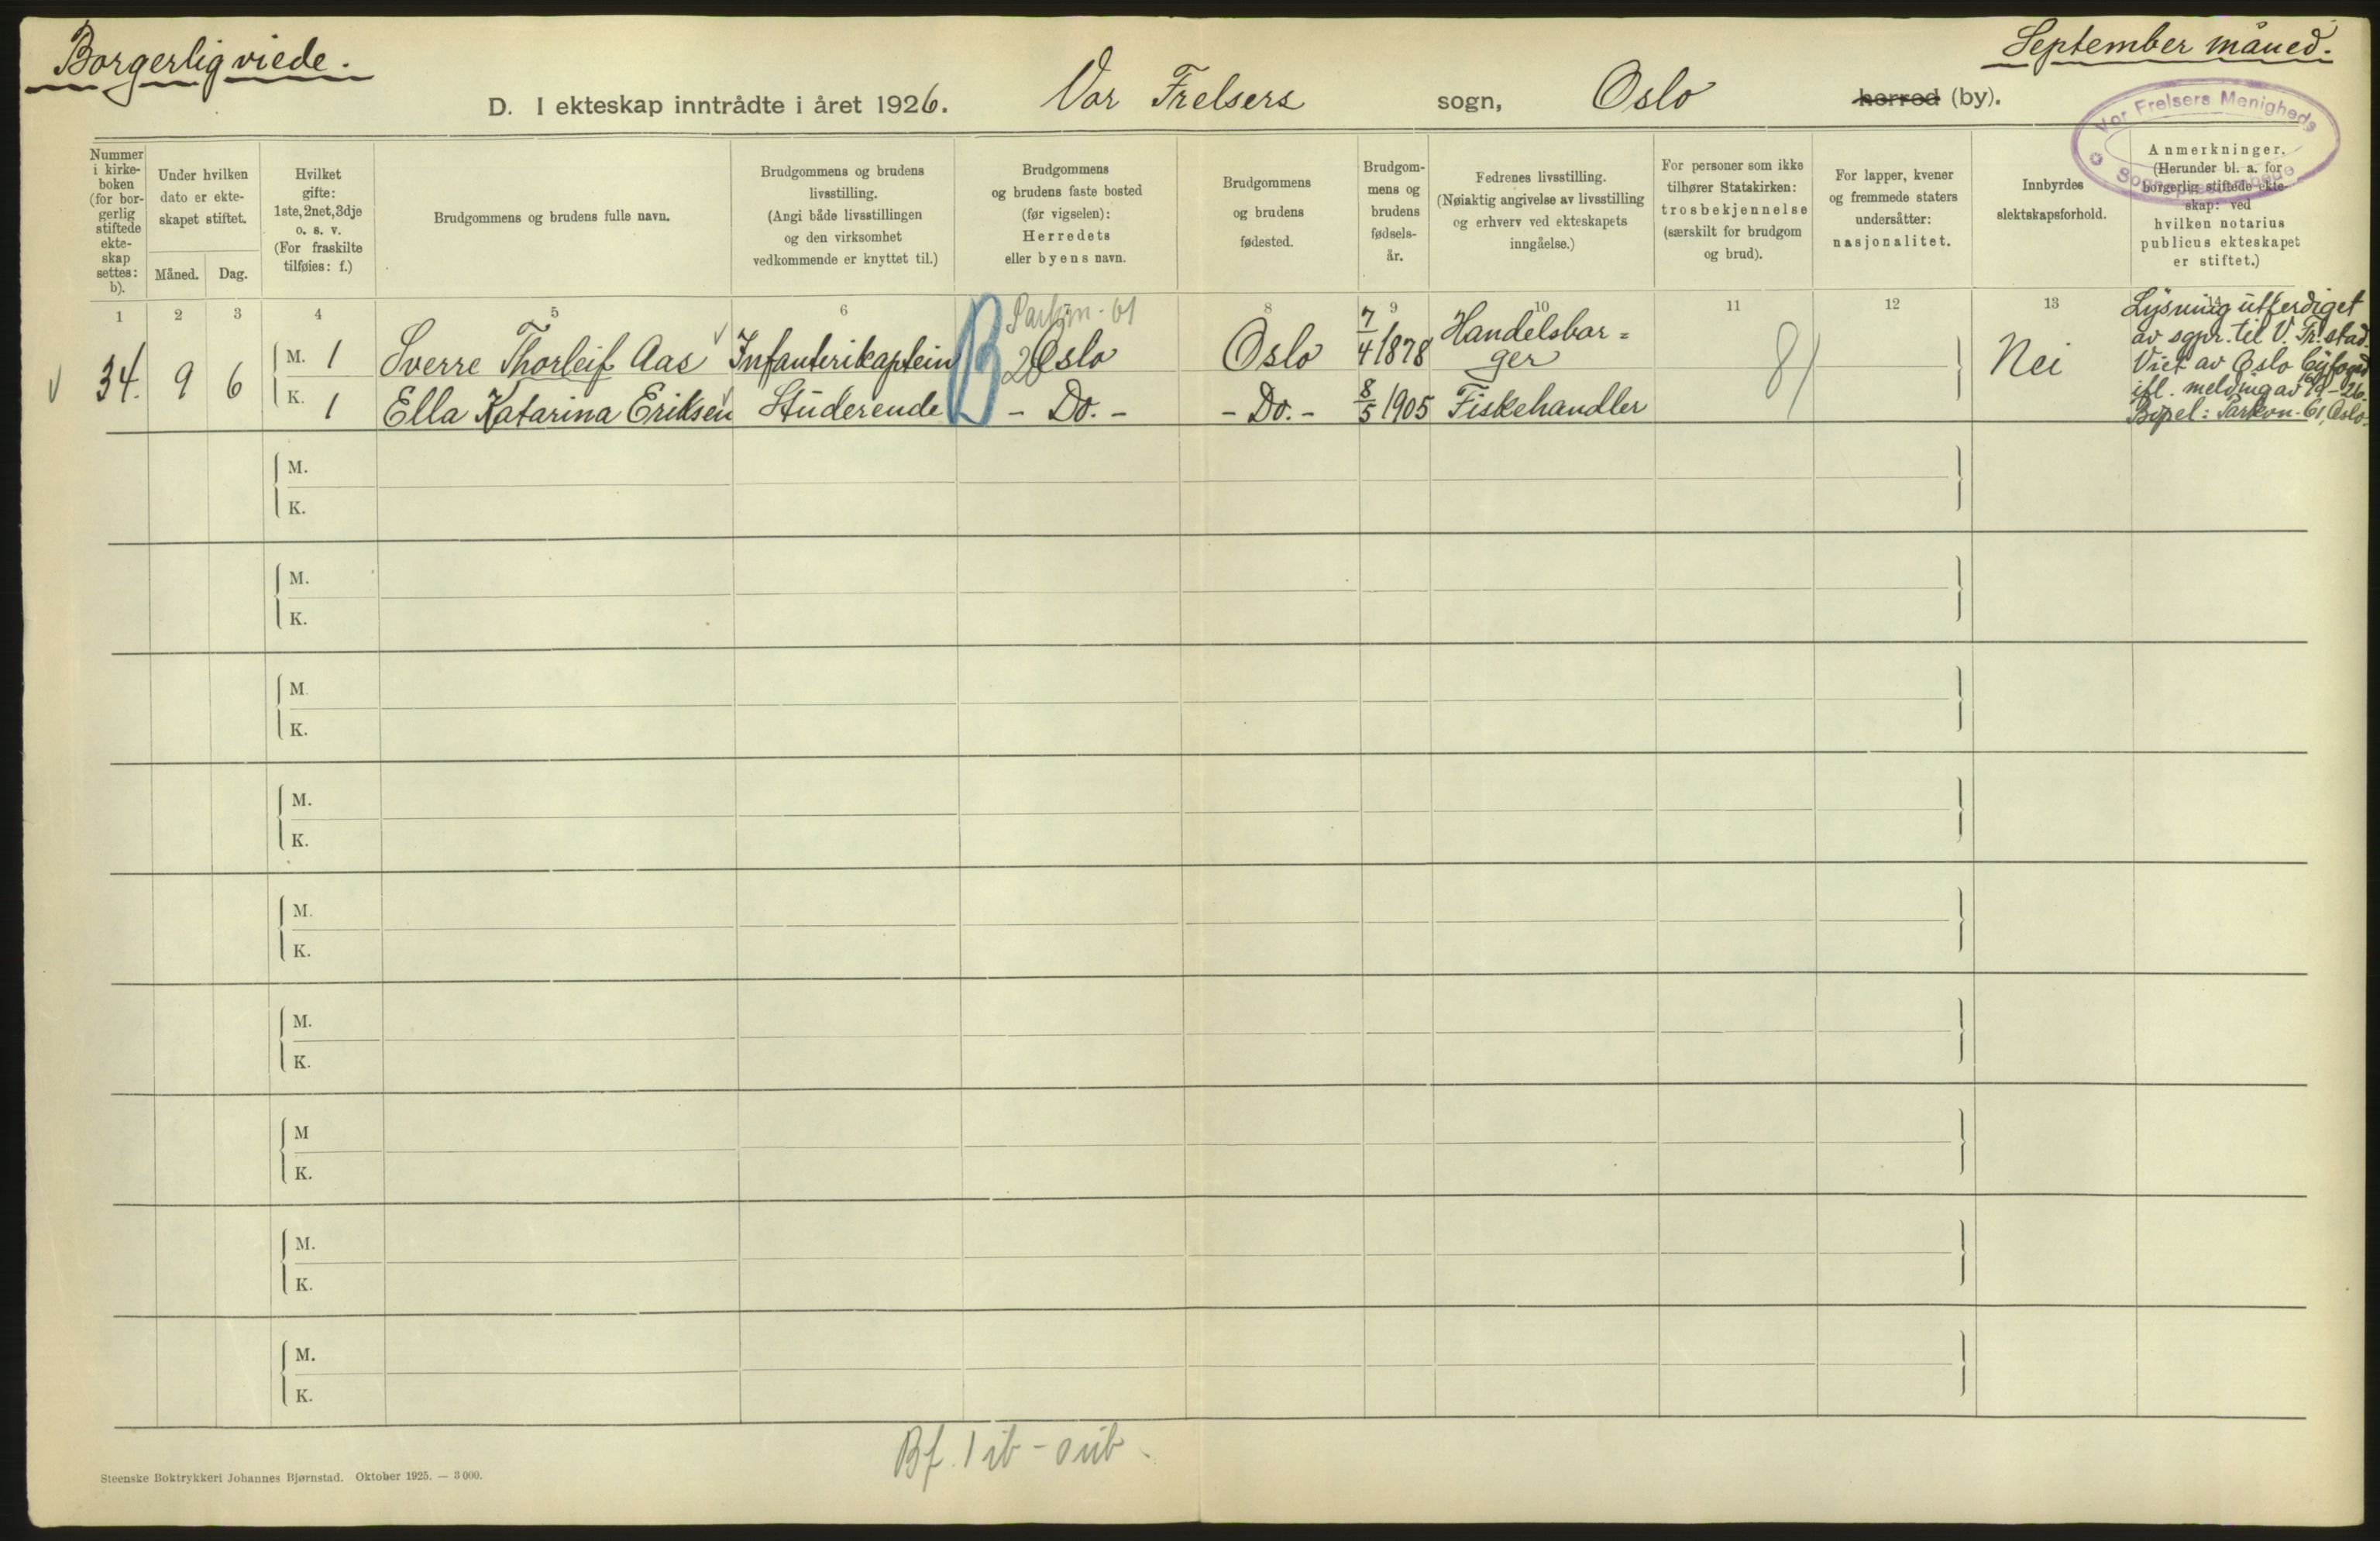 Borgerlig viede.
September måned.
D. I ekteskap inntrådte i året 1926. Vor Frelsers sogn, Oslo herred (by).
Vor Frelsers Menigheds
Nummer i kirke-boken (for bor-gerlig stiftede ekte-skap settes: b).
Under hvilken dato er ekte-skapet stiftet.
Måned. Dag.
Hvilket gifte: 1ste, 2net, 3dje o. s. v. (For fraskilte tilføies: f.)
Brudgommens og brudens fulle navn.
Brudgommens og brudens livsstilling. (Angi både livsstillingen og den virksomhet vedkommende er knyttet til.)
Brudgommens og brudens faste bosted (før vigselen): Herredets eller byens navn.
Brudgommens og brudens fødested.
Brudgom-mens og brudens fødsels-år.
Fedrenes livsstilling. (Nøiaktig angivelse av livsstilling og erhverv ved ekteskapets inngåelse.)
For personer som ikke tilhører Statskirken: trosbekjennelse (særskilt for brudgom og brud).
For lapper, kvener og fremmede staters undersåtter: nasjonalitet.
Innbyrdes slektskapsforhold.
Anmerkninger. (Herunder bl. a. for borgerlig stiftede ekte-skap: ved hvilken notarius publicus ekteskapet er stiftet.)
1 2 3 4 5 6 8 9 10 11 12 13 14
34. 9 6
M. 1 Sverre Thorleif Aas Infanterikaptein Oslo Oslo 7/4 1878 Handelsbor=ger
K. 1 Ella Katarina Eriksen Studerende - Do. - - Do. - 8/5 1905 Fiskehandler
B
20
81
Nei
Lysning utferdiget
av sgpr. til V. Fr. stad.
Viet av Oslo Byfogd
ifl. melding av 16/9-26.
Bopel: Parkvn. 61, Oslo.
M.
K.
M.
K.
M.
K.
M.
K.
M.
K.
M.
K.
M
K.
M.
K.
M.
K.
Steenske Boktrykkeri Johannes Bjørnstad. Oktober 1925. — 3 000.